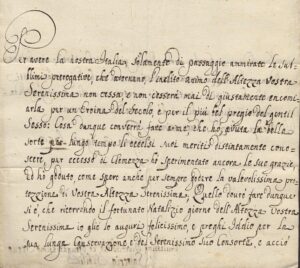 Per avere la nostra Italia solamente di passaggio ammirate le subl
limi prerogative che adornano l'inclito animo dell'Altezza Vostra
Serenissima non cessa, e non cesserà mai di giustamente encomi
arla per un Eroina del secolo, e per il più bel pregio del gentil
sesso: Cosa dunque converrà fare a me che ho avuta la bella
sorte più lungo tempo li eccelsi suoi meriti distintamente cono
scere, per eccesso di Clemenza ò sperimentato ancora le sue grazie,
ed hò goduto come spero anche per sempre godere la valevolissima pro
tezzione di Vostra Altezza Serenissima, Quello dovrò fare dunque
si è, che ricorrendo il fortunato Natalizio giorno dell'Altezza Vostra
Serenissima io glie lo auguri felicissimo, e preghi Iddio per la
sua lunga Conservazione, e del Serenissimo suo Consorte, e acciò